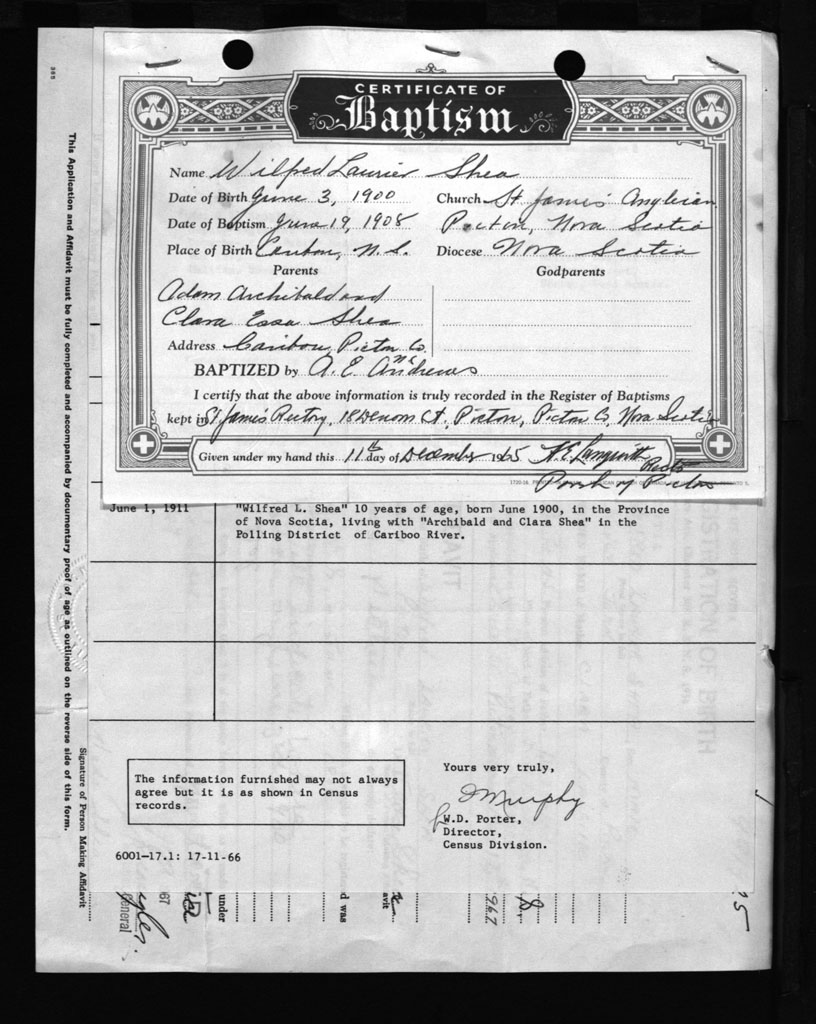 CERTIFICATE OF
Baptism
Name Wilfred Laurier Shea
Date of Birth June 3, 1900 Church St. James Anglican
Date of Baptism June 19, 1908 Pictou, Nova Scotia
Place of Birth Caribou, N.S. Diocese Nova Scotia
Parents Godparents
Adam Archibald and
Clara Essa Shea
Address Caribou, Pictou Co.
BAPTIZED by A. E. Andrews
I certify that the above information is truly recorded in the Register of Baptisms
kept in St. James Rectory, 18 Denoon St. Pictou, Pictou Co, Nova Scotia
Given under my hand this 11th day of December 1965
Rector
Parish of Pictou
June 1, 1911 "Wilfred L. Shea" 10 years of age, born June 1900, in the Province
of Nova Scotia, living with "Archibald and Clara Shea" in the
Polling District of Cariboo River.
The information furnished may not always
agree but it is as shown in Census
records.
Yours very truly,
Murphy
W.D. Porter,
Director,
Census Division.
6001-17.1: 17-11-66
This Application and Affidavit must be fully completed and accompanied by documentary proof of age as outlined on the reverse side of this form.
Signature of Person Making Affidavit
General
67
under
d was
avit
1967